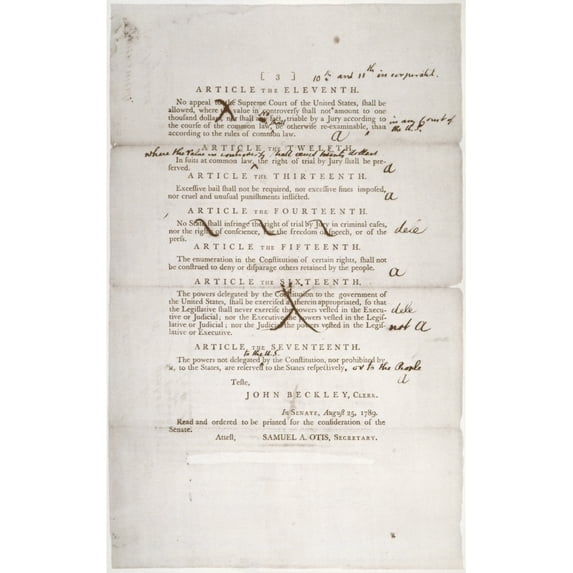 [ 3 ] 10th and 11th incorporated.
ARTICLE THE ELEVENTH.
No appeal to the Supreme Court of the United States, shall be
allowed, where the value in controversy shall not amount to one
thousand dollars, nor shall any fact, triable by a Jury according to in any Court of
the course of the common law, be otherwise re-examinable, than the U.S.
according to the rules of common law. a
ARTICLE THE TWELFTH.
where the value in controversy shall exceed twenty dollars
In suits at common law, the right of trial by Jury shall be pre- a
served.
ARTICLE THE THIRTEENTH.
Excessive bail shall not be required, nor excessive fines imposed, a
nor cruel and unusual punishments inflicted.
ARTICLE THE FOURTEENTH.
No State shall infringe the right of trial by Jury in criminal cases,
nor the rights of conscience, nor the freedom of speech, or of the dele
press.
ARTICLE THE FIFTEENTH.
The enumeration in the Constitution of certain rights, shall not
be construed to deny or disparage others retained by the people. a
ARTICLE THE SIXTEENTH.
The powers delegated by the Constitution to the government of
the United States, shall be exercised as therein appropriated, so that
the Legislative shall never exercise the powers vested in the Execu- dele
tive or Judicial; nor the Executive the powers vested in the Legis-
lative or Judicial; nor the Judicial the powers vested in the Legis- not a
lative or Executive.
ARTICLE THE SEVENTEENTH.
to the U.S.
The powers not delegated by the Constitution, nor prohibited by
it, to the States, are reserved to the States respectively, or to the People
a
Teste,
JOHN BECKLEY, CLERK.
In SENATE, August 25, 1789.
Read and ordered to be printed for the consideration of the
Senate.
Attest, SAMUEL A. OTIS, SECRETARY.